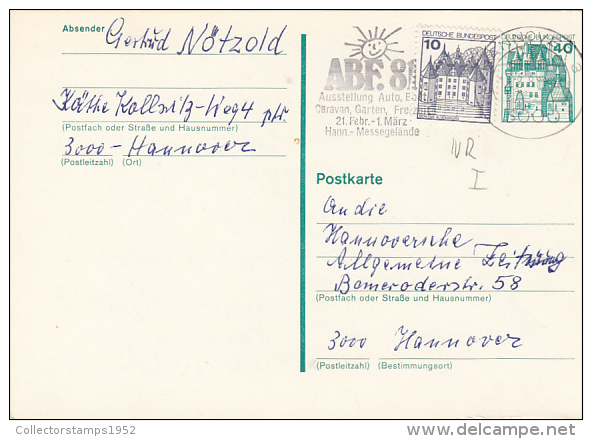 Absender
Gertrud Nötzold
Käthe Kollwitz-Weg 4 ptr.
(Postfach oder Straße und Hausnummer)
3000 - Hannover
(Postleitzahl) (Ort)
ABF. 81
Ausstellung Auto,
Caravan, Garten,
21. Febr. - 1. März
Hann. - Messegelände
DEUTSCHE BUNDESPOST
10
DEUTSCHE BUNDESPOST
40
NR
I
Postkarte
An die
Hannoversche
Allgemeine Zeitung
Bemeroderstr. 58
(Postfach oder Straße und Hausnummer)
3000 Hannover
(Postleitzahl) (Bestimmungsort)
Collectorstamps1952
delcampe.net